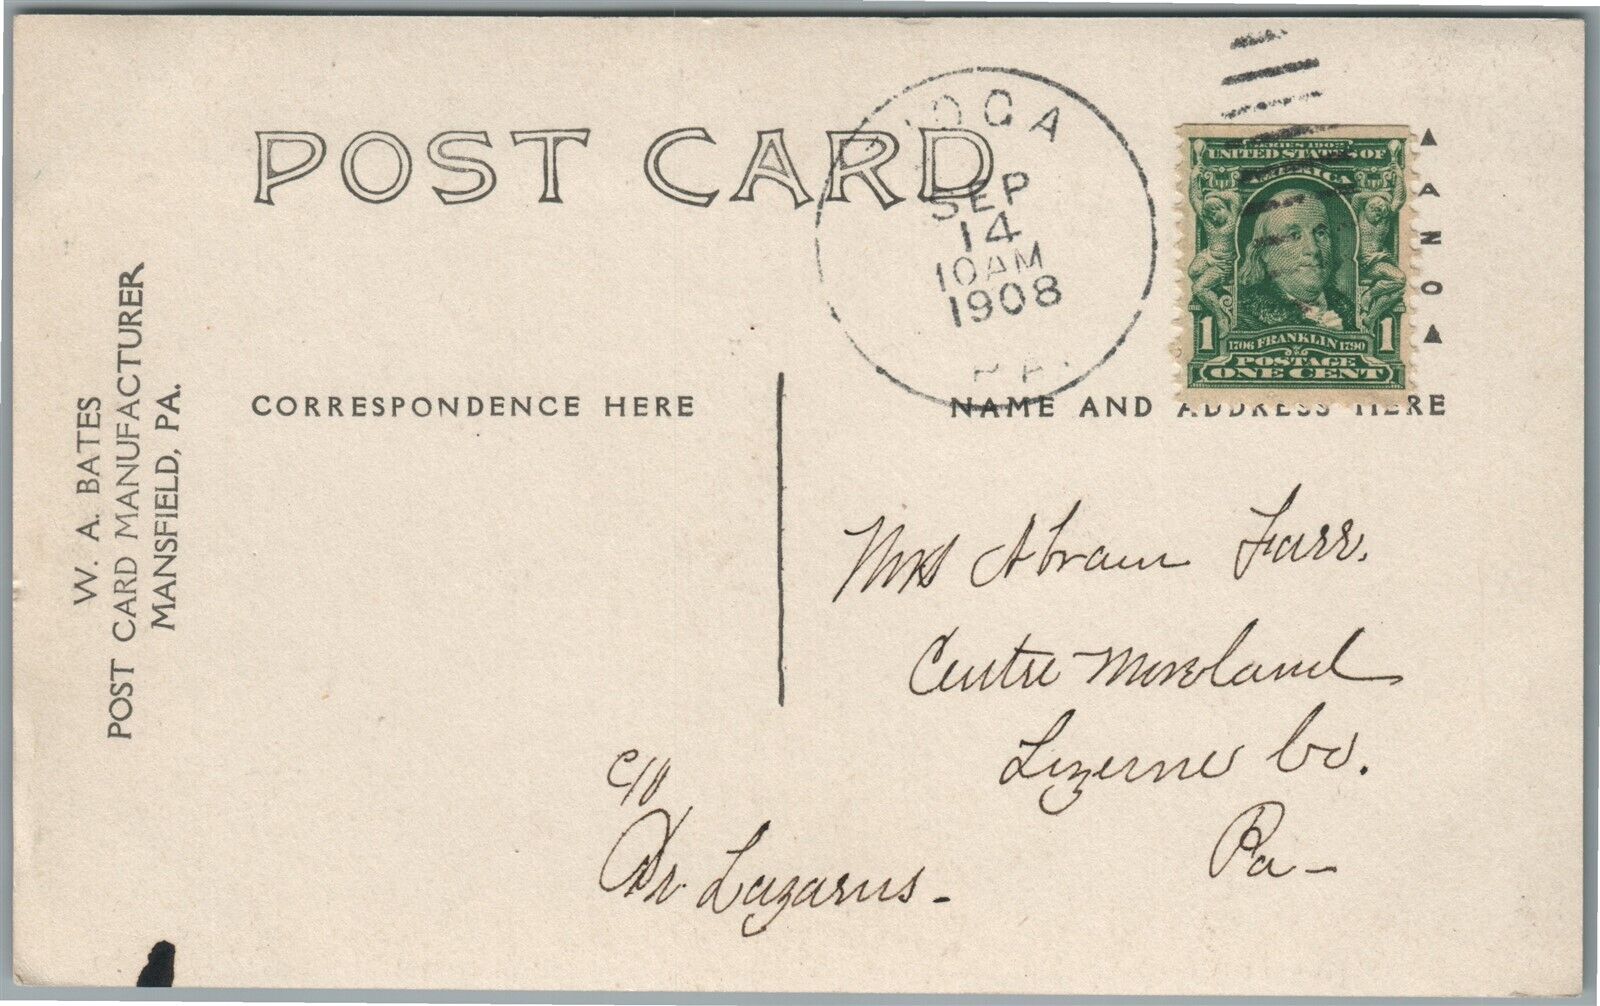 POST CARD
OGA
SEP
14
10 AM
1908
PA.
SERIES 1902
UNITED STATES OF
AMERICA
1 1
1706 FRANKLIN 1790
POSTAGE
ONE CENT
CORRESPONDENCE HERE
NAME AND ADDRESS HERE
W. A. BATES
POST CARD MANUFACTURER
MANSFIELD, PA.
Mrs Abram Farr.
Centre Moreland
Luzerne Co.
Pa -
c/o
Dr. Lazarus -